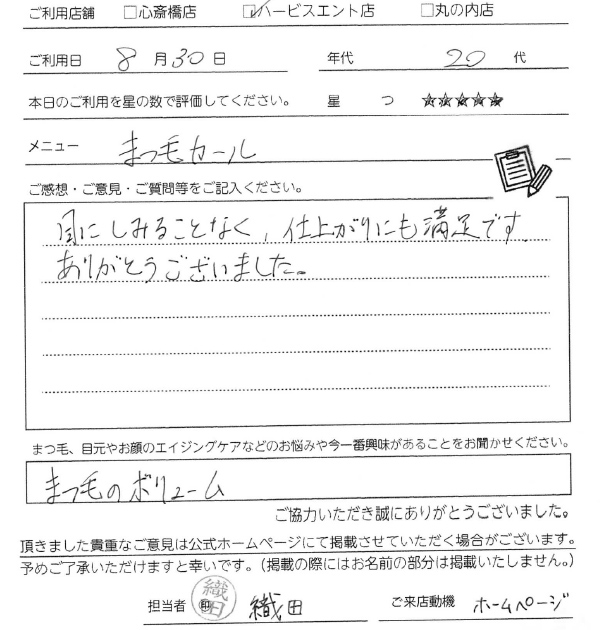 ご利用店舗 □心斎橋店 ☑ハービスエント店 □丸の内店
ご利用日 8 月 30 日 年代 20 代
本日のご利用を星の数で評価してください。 星 つ ★★★★★
メニュー まつ毛カール
ご感想・ご意見・ご質問等をご記入ください。
目にしみることなく、仕上がりにも満足です。
ありがとうございました。
まつ毛、目元やお顔のエイジングケアなどのお悩みや今一番興味があることをお聞かせください。
まつ毛のボリューム
ご協力いただき誠にありがとうございました。
頂きました貴重なご意見は公式ホームページにて掲載させていただく場合がございます。
予めご了承いただけますと幸いです。(掲載の際にはお名前の部分は掲載いたしません。)
担当者 織田 印 織田 ご来店動機 ホームページ